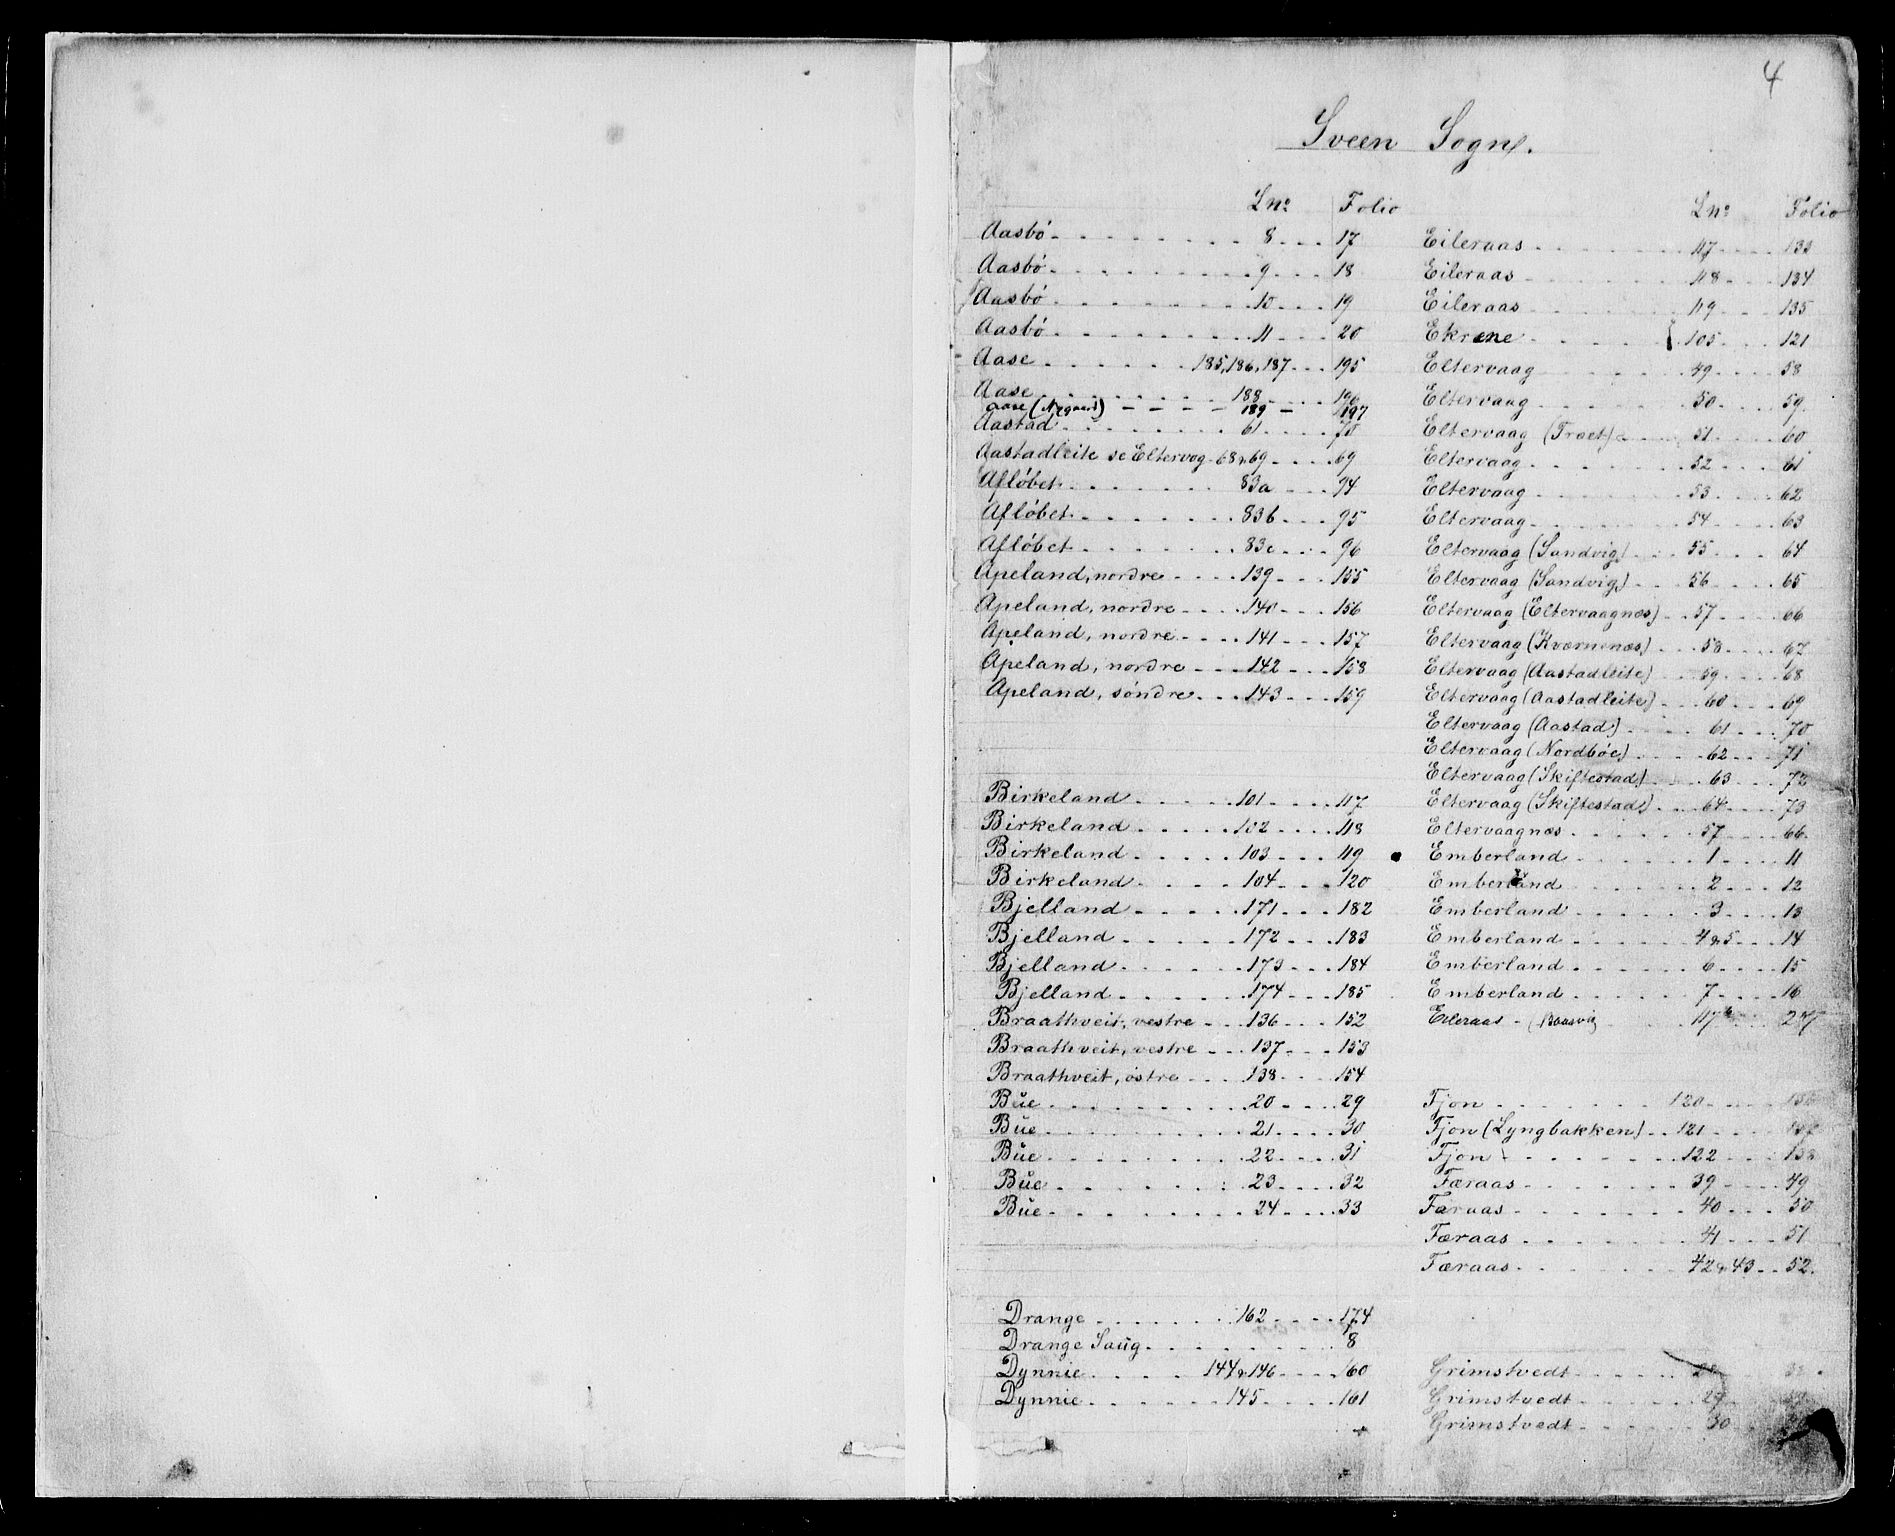 4
Sveen Sogn.
Lno Folio
Aasbó 8 17
Aasbó 9 18
Aasbó 10 19
Aasbó 11 20
Aase 185, 186, 187 195
Aase 188 196
Aase (Nygaard) 189 197
Aastad 61 70
Aastadleite se Eltervog 68 & 69 69
Aflóbet 83a 94
Aflóbet 83b 95
Aflóbet 83c 96
Apeland, nordre 139 155
Apeland, nordre 140 156
Apeland, nordre 141 157
Apeland, nordre 142 158
Apeland, sóndre 143 159
Birkeland 101 117
Birkeland 102 118
Birkeland 103 119
Birkeland 104 120
Bjelland 171 182
Bjelland 172 183
Bjelland 173 184
Bjelland 174 185
Braathveit, vestre 136 152
Braathveit, vestre 137 153
Braathveit, óstre 138 154
Bŭe 20 29
Bŭe 21 30
Bŭe 22 31
Bŭe 23 32
Bŭe 24 33
Drange 162 174
Drange Saŭg 8
Dynnie 144 & 146 160
Dynnie 145 161
Lno Folio
Eileraas 117 133
Eileraas 118 134
Eileraas 119 135
Ekrene 105 121
Eltervaag 49 58
Eltervaag 50 59
Eltervaag (Træet) 51 60
Eltervaag 52 61
Eltervaag 53 62
Eltervaag 54 63
Eltervaag (Sandvig) 55 64
Eltervaag (Sandvig) 56 65
Eltervaag (Eltervaagnæs) 57 66
Eltervaag (Kværnenæs) 58 67
Eltervaag (Aastadleite) 59 68
Eltervaag (Aastadleite) 60 69
Eltervaag (Aastad) 61 70
Eltervaag (Nordbóe) 62 71
Eltervaag (Skiftestad) 63 72
Eltervaag (Skiftestad) 64 73
Eltervaagnæs 57 66
Emberland 1 11
Emberland 2 12
Emberland 3 13
Emberland 4 & 5 14
Emberland 6 15
Emberland 7 16
Eileraas
Fjon 120
Fjon (Lyngbakken) 121 137
Fjon 122 138
Færaas 39 49
Færaas 40 50
Færaas 41 51
Færaas 42 & 43 52
Grimstvedt
Grimstvedt 29
Grimstvedt 30